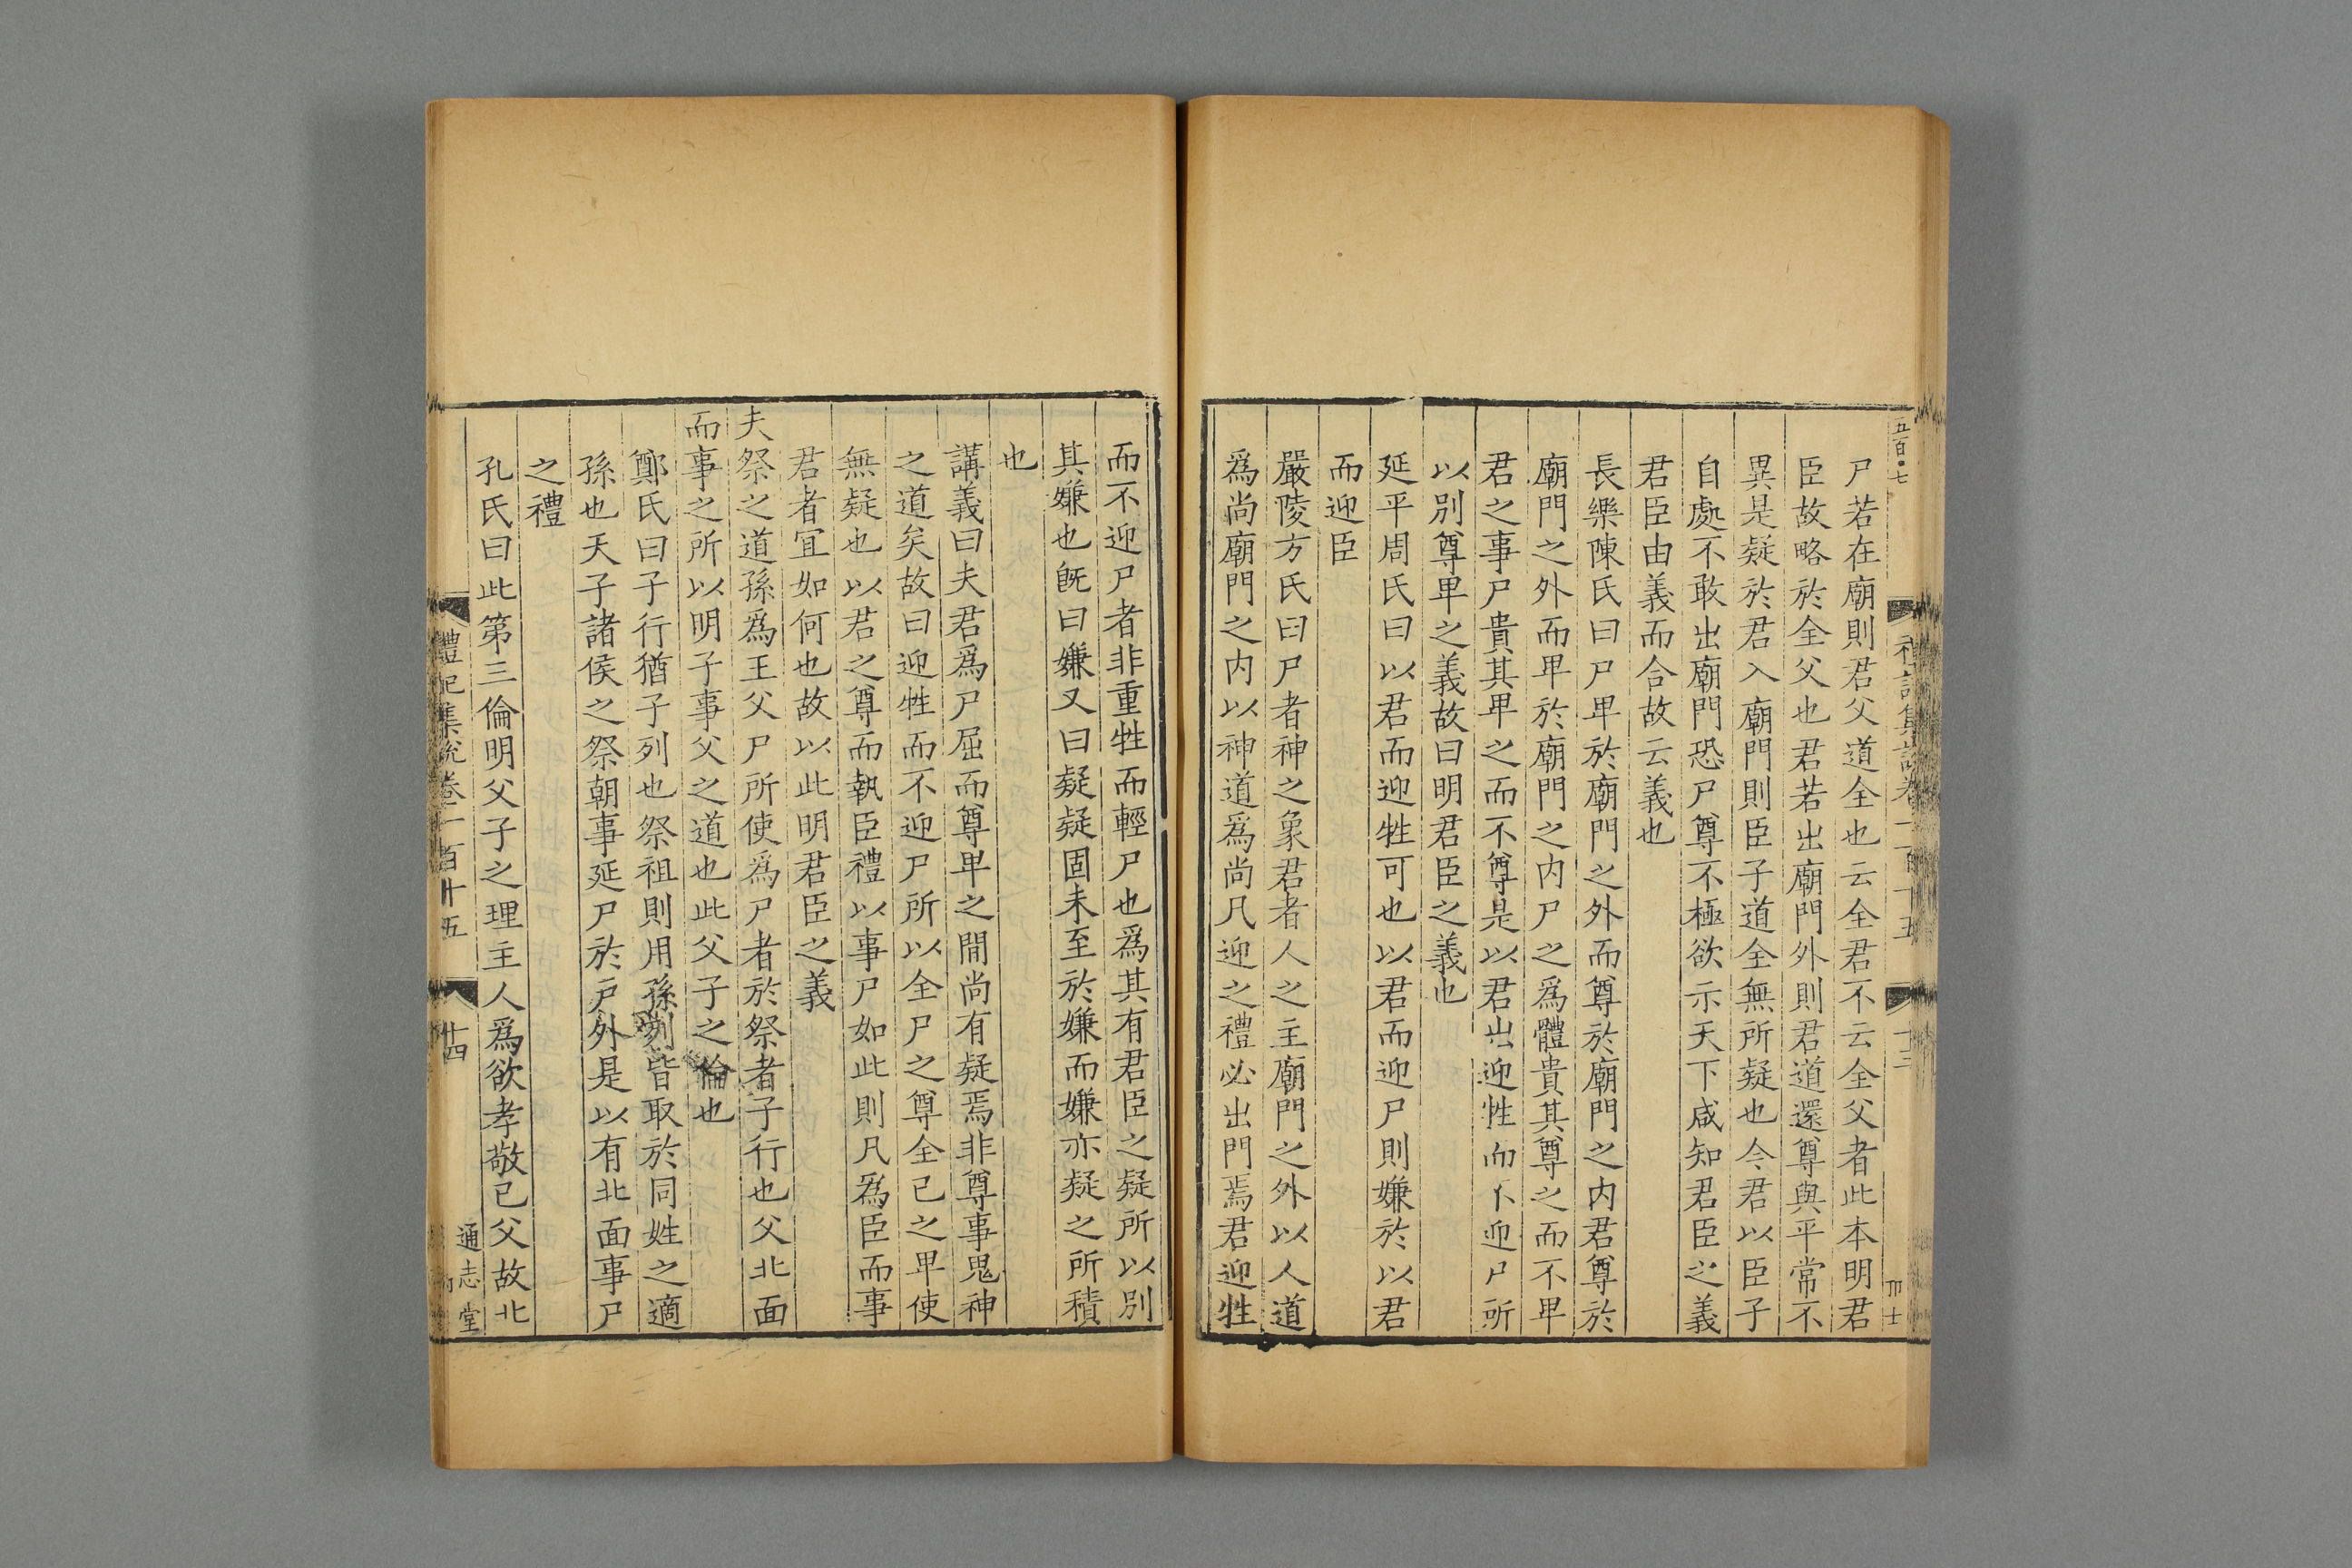 五百七
禮記集說卷一百十五
十三
尸若在廟則君父道全也云全君不云全父者此本明君
臣故略於全父也君若出廟門外則君道還尊與平常不
異是疑於君入廟門則臣子道全無所疑也今君以臣子
自處不敢出廟門恐尸尊不極欲示天下咸知君臣之義
君臣由義而合故云義也
長樂陳氏曰尸卑於廟門之外而尊於廟門之内君尊於
廟門之外而卑於廟門之内尸之爲體貴其尊之而不卑
君之事尸貴其卑之而不尊是以君出迎牲而不迎尸所
以別尊卑之義故曰明君臣之義也
延平周氏曰以君而迎牲可也以君而迎尸則嫌於以君
而迎臣
嚴陵方氏曰尸者神之象君者人之主廟門之外以人道
爲尚廟門之内以神道爲尚凡迎之禮必出門焉君迎牲
而不迎尸者非重牲而輕尸也爲其有君臣之疑所以別
其嫌也旣曰嫌又曰疑疑固未至於嫌而嫌亦疑之所積
也
講義曰夫君爲尸屈而尊卑之間尚有疑焉非尊事鬼神
之道矣故曰迎牲而不迎尸所以全尸之尊全已之卑使
無疑也以君之尊而執臣禮以事尸如此則凡爲臣而事
君者宜如何也故以此明君臣之義
夫祭之道孫爲王父尸所使爲尸者於祭者子行也父北面
而事之所以明子事父之道也此父子之倫也
鄭氏曰子行猶子列也祭祖則用孫列皆取於同姓之適
孫也天子諸侯之祭朝事延尸於戸外是以有北面事尸
之禮
孔氏曰此第三倫明父子之理主人爲欲孝敬已父故北
禮記集說卷一百十五
十四
通志堂